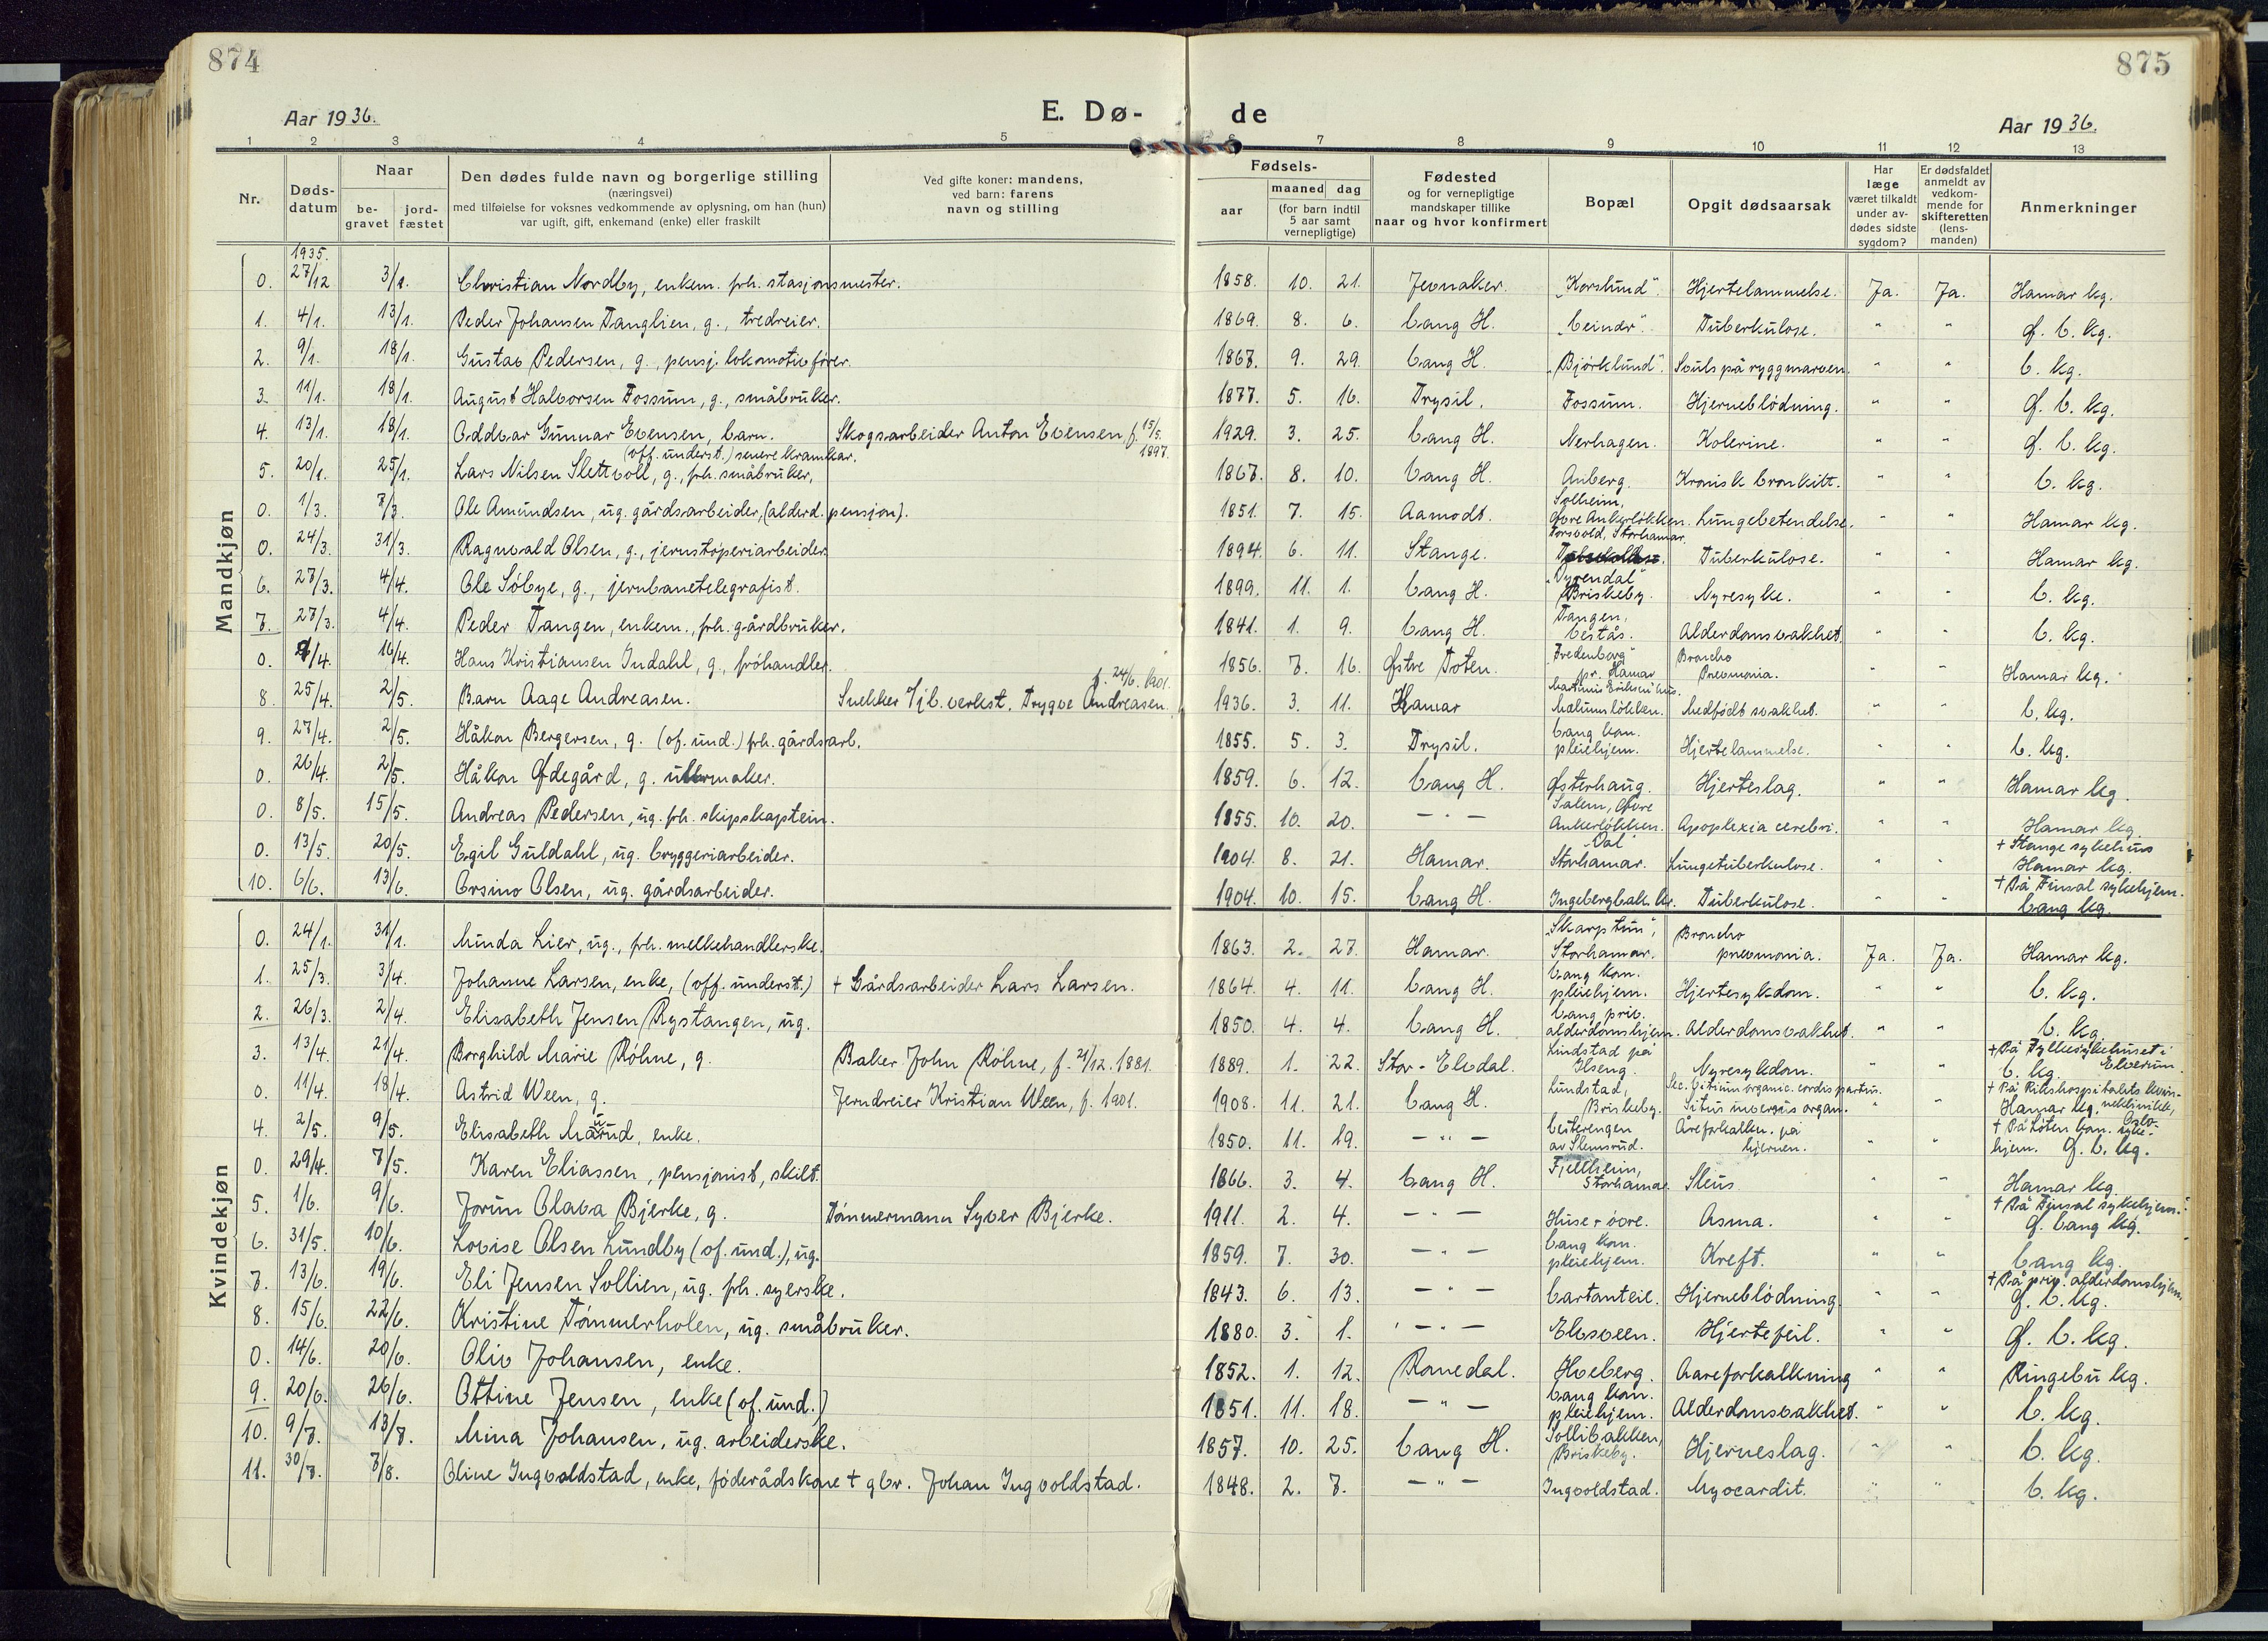 874
875
Aar 1936.
E. Dø-
de
Aar 1936.
1 2 3 4 5 6 7 8 9 10 11 12 13
Nr.
Døds-
datum
Naar
be-
gravet
jord-
fæstet
Den dødes fulde navn og borgerlige stilling
(næringsvei)
med tilføielse for voksnes vedkommende av oplysning, om han (hun)
var ugift, gift, enkemand (enke) eller fraskilt
Ved gifte koner: mandens,
ved barn: farens
navn og stilling
Fødsels-
aar
maaned dag
(for barn indtil
5 aar samt
vernepligtige)
Fødested
og for vernepligtige
mandskaper tillike
naar og hvor konfirmert
Bopæl
Opgit dødsaarsak
Har
læge
været tilkaldt
under av-
dødes sidste
sygdom?
Er dødsfaldet
anmeldt av
vedkom-
mende for
skifteretten
(lens-
manden)
Anmerkninger
Mandkjøn
1935.
0. 27/12 3/1. Christian Nordby, enkem. frh. stasjonsmester. 1858. 10. 21. Jevnaker. "Korslund". Hjertelammelse. Ja. Ja. Hamar kg.
1. 4/1. 13/1. Peder Johansen Tanglien, g., tredreier. 1869. 8. 6. Vang H. Tuberkulose. " " Ø. V. kg.
2. 9/1. 18/1. Gustav Pedersen, g., pensj. lokomotivfører. 1867. 9. 29. Vang H. "Bjørklund". Svuls på ryggmarven. " " V. kg.
3. 11/1. 18/1. August Halvorsen Fossum, g., småbruker. 1877. 5. 16. Trysil. Fossum. Hjerneblødning. " " Ø. V. kg.
4. 13/1. 18/1. Oddvar Gunnar Evensen, barn. Skogsarbeider Anton Evensen f. 15/5. 1897. 1929. 3. 25. Vang H. Nerhagen. Kolerine. " " Ø. V. kg.
(off. underst.) senere kramkar.
5. 20/1. 25/1. Lars Nilsen Slettvoll, g., frh. småbruker, 1867. 8. 10. Vang H. Auberg. Kronisk bronkitt. " " V. kg.
0. 1/3. 7/3. Ole Amundsen, ug. gårdsarbeider, (alderd. pensjon). 1851. 7. 15. Aamodt. Solheim, Øvre Ankerløkken. Lungebetendelse. " " Hamar kg.
0. 24/3. 31/3. Ragnvald Olsen, g., jernstøperiarbeider. 1894. 6. 11. Stange. Torsvold, Storhamar. Tuberkulose. " " Hamar kg.
6. 27/3. 4/4. Ole Søbye, g., jernbanetelegrafist. 1899. 11. 1. Vang H. "Dyrendal" Briskeby. Nyresyke. " " V. kg.
7. 27/3. 4/4. Peder Tangen, enkem., frh. gårdbruker. 1841. 1. 9. Vang H. Tangen, Vestås. Alderdomsvakhet. " " V. kg.
0. 9/4. 16/4. Hans Kristiansen Indahl, g., frøhandler. 1856. 7. 16. Østre Toten. "Fredenborg" pr. Hamar Broncho Pneumonia. " " Hamar kg.
8. 25/4. 2/5. Barn Aage Andreasen. Snekker v/jb. verkst. Trygve Andreasen f. 24/6. 1901. 1936. 3. 11. Hamar Martinus Eriksen hus. Malumløkken. Medfødt svakhet. " " V. kg.
9. 27/4. 2/5. Håkon Bergersen, g. (of. und.) frh. gårdsarb. 1855. 5. 3. Trysil. Vang kom. pleiehjem. Hjertelammelse. " " V. kg.
0. 26/4. 2/5. Håkon Ødegård, g. urmaker. 1859. 6. 12. Vang H. Østerhaug. Hjerteslag. " " Hamar kg.
0. 8/5. 15/5. Andreas Pedersen, ug. frh. skipskaptein. 1855. 10. 20. — " — Salem, Øvre Ankerløkken. Apoplexia cerebri. " " Hamar kg.
0. 13/5. 20/5. Egil Guldahl, ug. bryggeriarbeider. 1904. 8. 21. Hamar. "Dal" Storhamar. Lungetuberkulose. " " + Stange sykehus Hamar kg.
10. 6/6. 13/6. Orsino Olsen, ug. gårdsarbeider. 1904. 10. 15. Vang H. Ingebergbakk. Tuberkulose. " " + På Finsal sykehjem. Vang kg.
Kvindekjøn
0. 24/1. 31/1. Minda Lier, ug., frh. melkehandlerske. 1863. 2. 27. Hamar. "Skarptun", Storhamar. Broncho pneumonia. Ja. Ja. Hamar kg.
1. 25/3. 3/4. Johanne Larsen, enke, (off. underst.) + Gårdsarbeider Lars Larsen. 1864. 4. 11. Vang H. Vang kom. pleiehjem. Hjertesykdom. " " V. kg.
2. 26/3. 2/4. Elisabeth Jensen Rystangen, ug. 1850. 4. 4. Vang H. Vang priv. alderdomshjem. Alderdomsvakhet. " " V. kg.
3. 13/4. 21/4. Borghild Marie Røhne, g. Baker John Røhne, f. 21/12. 1881. 1889. 1. 22. Stor-Elvdal. Lindstad på Ilseng. Nyresykdom. " " + På Fylkessykehuset i Elverum. V. kg.
0. 11/4. 18/4. Astrid Ween, g. Jerndreier Kristian Ween, f. 1901. 1908. 11. 21. Vang H. Lundstad, Briskeby. Vitium organic. cordis partus. Situs inversus organ. " + På Rikshospitalets kvinneklinikk, Oslo. Hamar kg.
4. 2/5. 9/5. Elisabeth Mårud, enke. 1850. 11. 19. — " — Veiterengen av Slemsrud. Åreforkalkn. på hjernen. " " + På Løten kom. sykehjem. Ø. V. kg.
0. 29/4. 7/5. Karen Eliassen, pensjonist, skilt. 1866. 3. 4. Vang H. Fjellheim, Storhamar. Ileus " " Hamar kg.
5. 1/6. 9/6. Jorun Olava Bjerke, g. Tømmermann Syver Bjerke. 1911. 2. 4. — " — Huse øvre. Asma. " " + På Finsal sykehjem. Ø. Vang kg.
6. 31/5. 10/6. Lovise Olsen Lundby (of. und.), ug. 1859. 7. 30. — " — Vang kom. pleiehjem. Kreft. " " Vang kg.
7. 13/6. 19/6. Eli Jensen Sollien, ug. frh. syerske. 1843. 6. 13. — " — Hjerneblødning. " " + På priv. alderdomshjem. Ø. V. kg.
8. 15/6. 22/6. Kristine Tømmerholen, ug. småbruker. 1880. 3. 1. — " — Elvsveen. Hjertefeil. " " Ø. V. kg.
0. 14/6. 20/6. Oliv Johansen, enke. 1852. 1. 12. Ronedal. Hoeberg. Aareforkalkning " " Ringebu kg.
9. 20/6. 26/6. Ottine Jensen, enke (of. und.) 1851. 11. 18. — " — Vang kom. pleiehjem. Alderdomsvakhet. " " V. kg.
10. 9/7. 13/7. Mina Johansen, ug. arbeiderske. 1857. 10. 25. Vang H. Sollibakken, Briskeby. Hjerneslag. " " V. kg.
11. 30/7. 7/8. Oline Ingvoldstad, enke, føderådskone + gbr. Johan Ingvoldstad. 1848. 2. 7. — " — Ingvoldstad. Myocardit. " " V. kg.